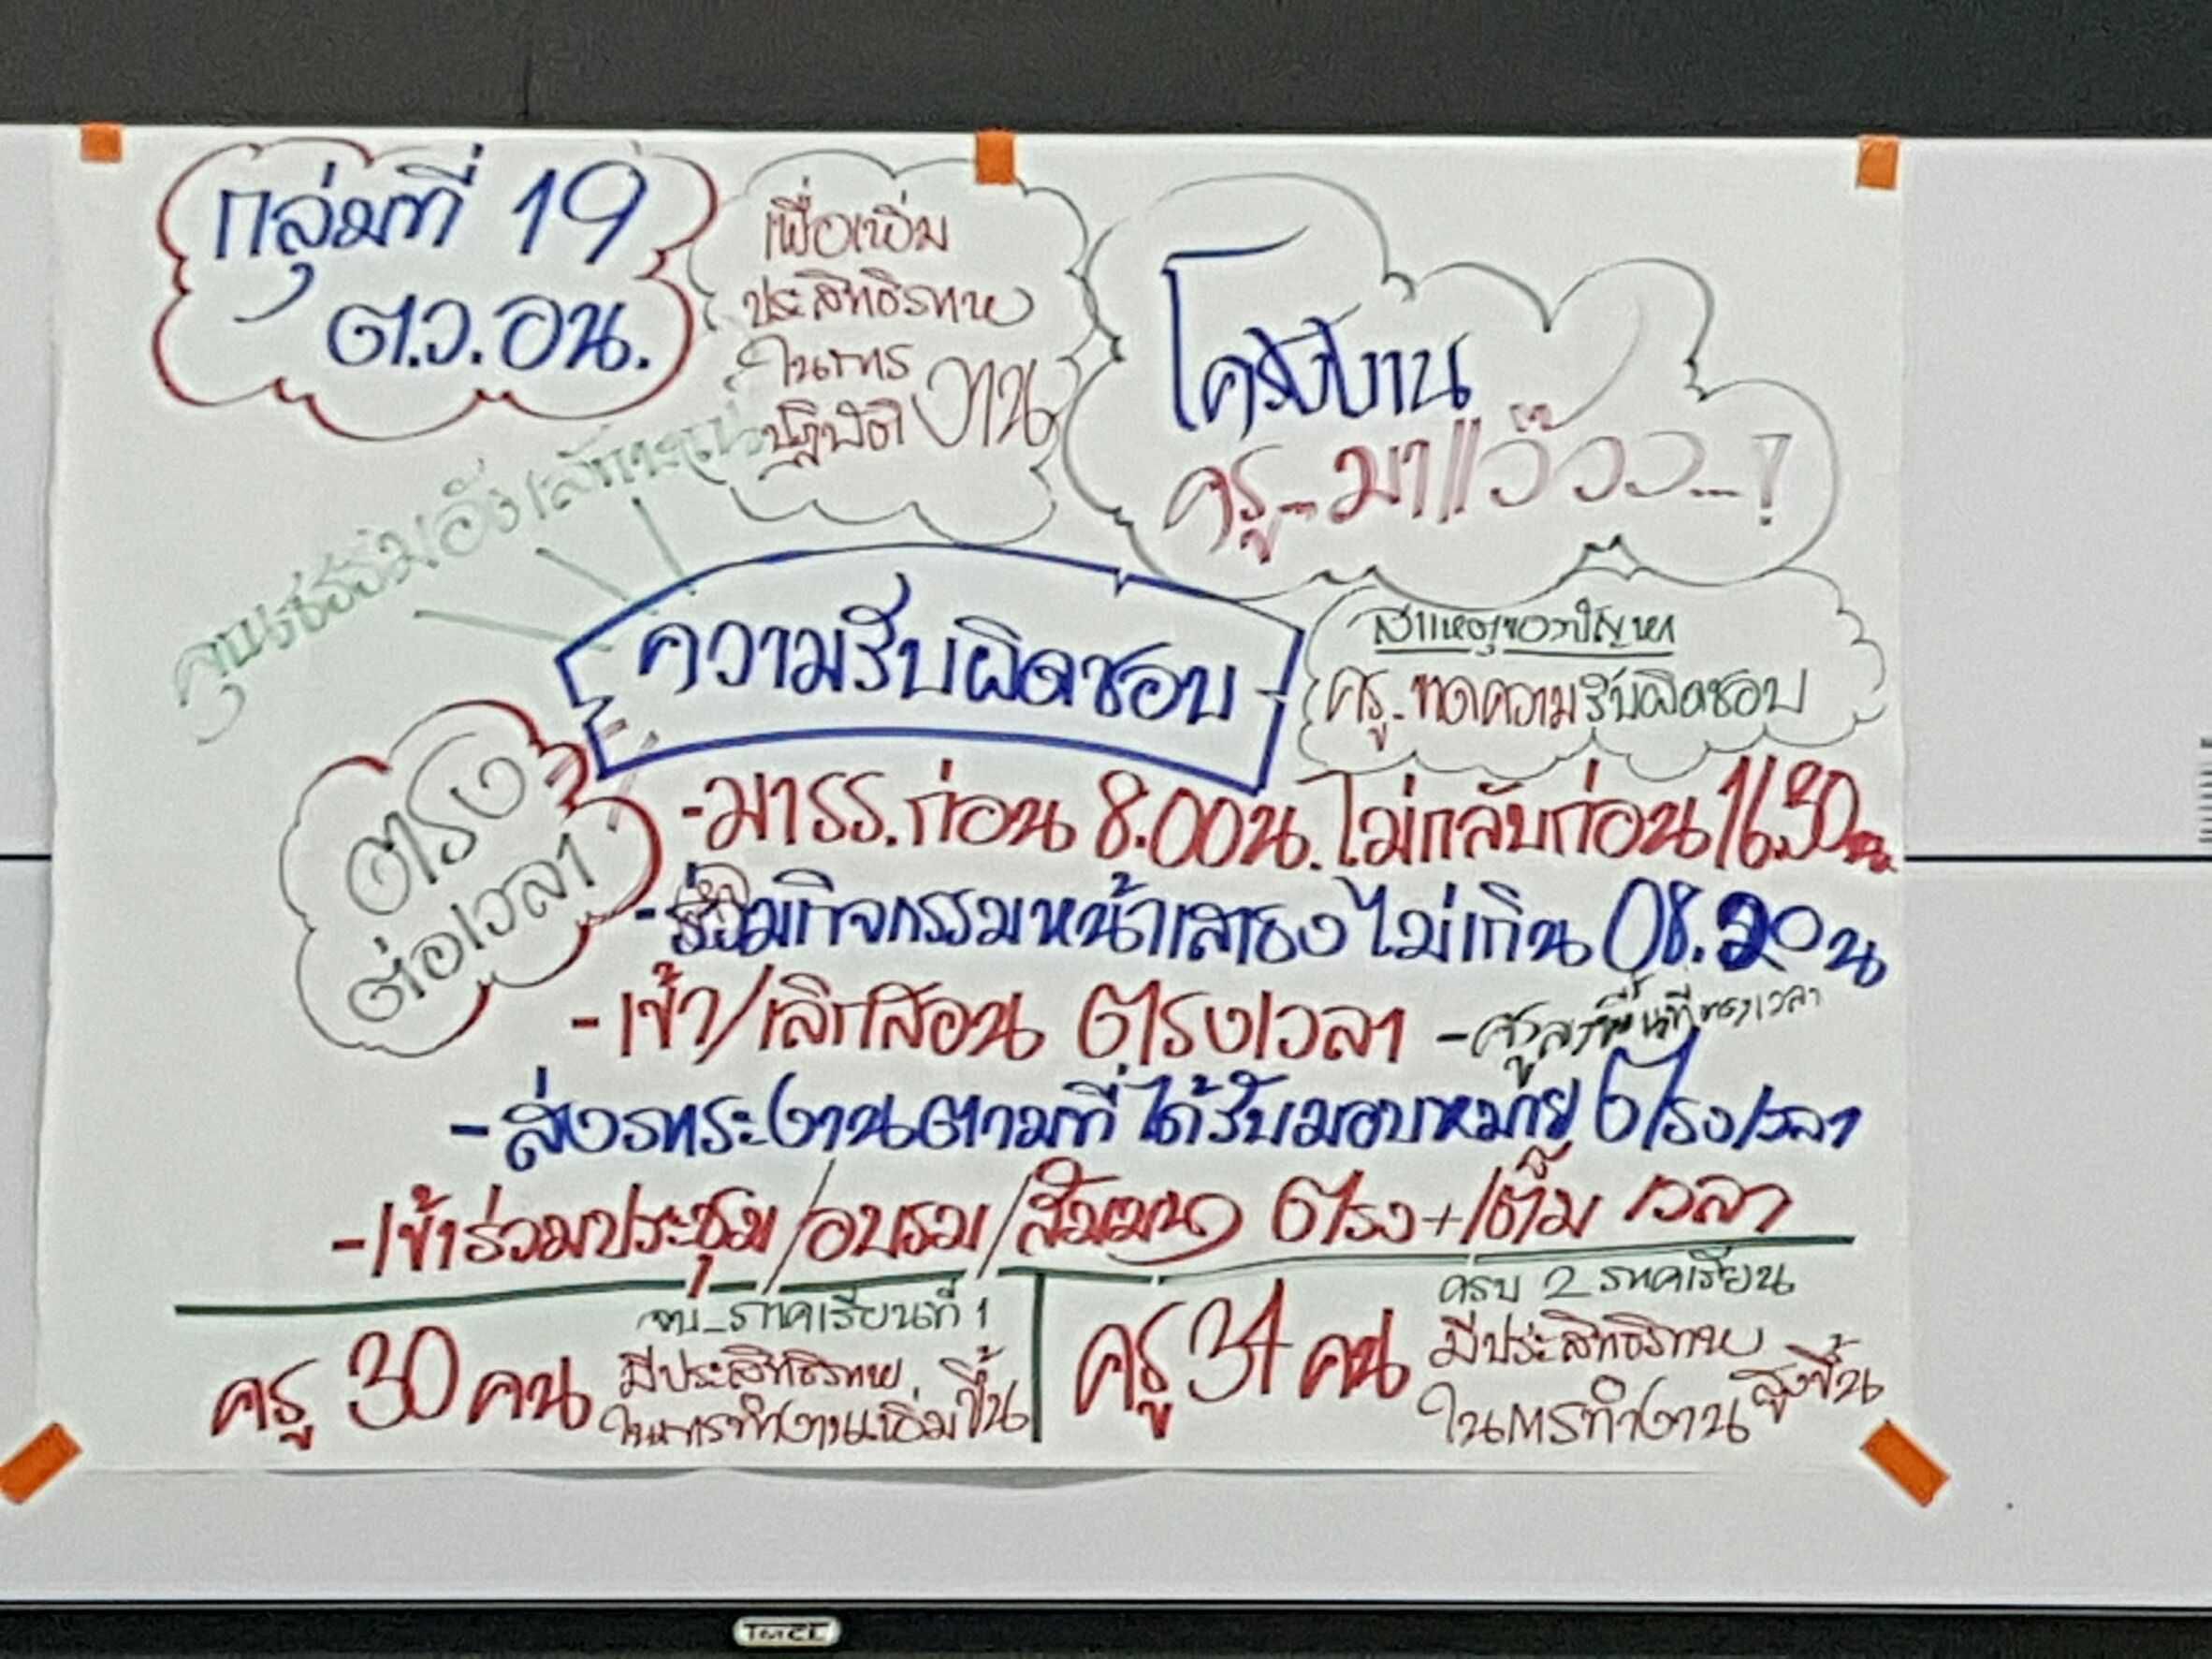 กลุ่มที่ 19
ต.ว.อน.
เพื่อเพิ่ม
ประสิทธิภาพ
ในการ
ปฏิบัติงาน
โครงงาน
ครู...มาแว๊ววว...!
คุณธรรมอัตลักษณ์
ความรับผิดชอบ
สาเหตุของปัญหา
ครู-ขาดความรับผิดชอบ
ตรง
ต่อเวลา
-มารร.ก่อน 8.00น. ไม่กลับก่อน 16.30น.
-ร่วมกิจกรรมหน้าเสาธง ไม่เกิน 08.20น
-เข้า/เลิกสอน ตรงเวลา
-ส่งภาระงานตามที่ได้รับมอบหมาย ตรงเวลา
-เข้าร่วมประชุม/อบรม/สัมมนา ตรง+เต็ม เวลา
จบ_ภาคเรียนที่ 1
ครู 30 คน มีประสิทธิภาพ
ในการทำงานเพิ่มขึ้น
ครบ 2 ภาคเรียน
ครู 34 คน มีประสิทธิภาพ
ในการทำงาน สูงขึ้น